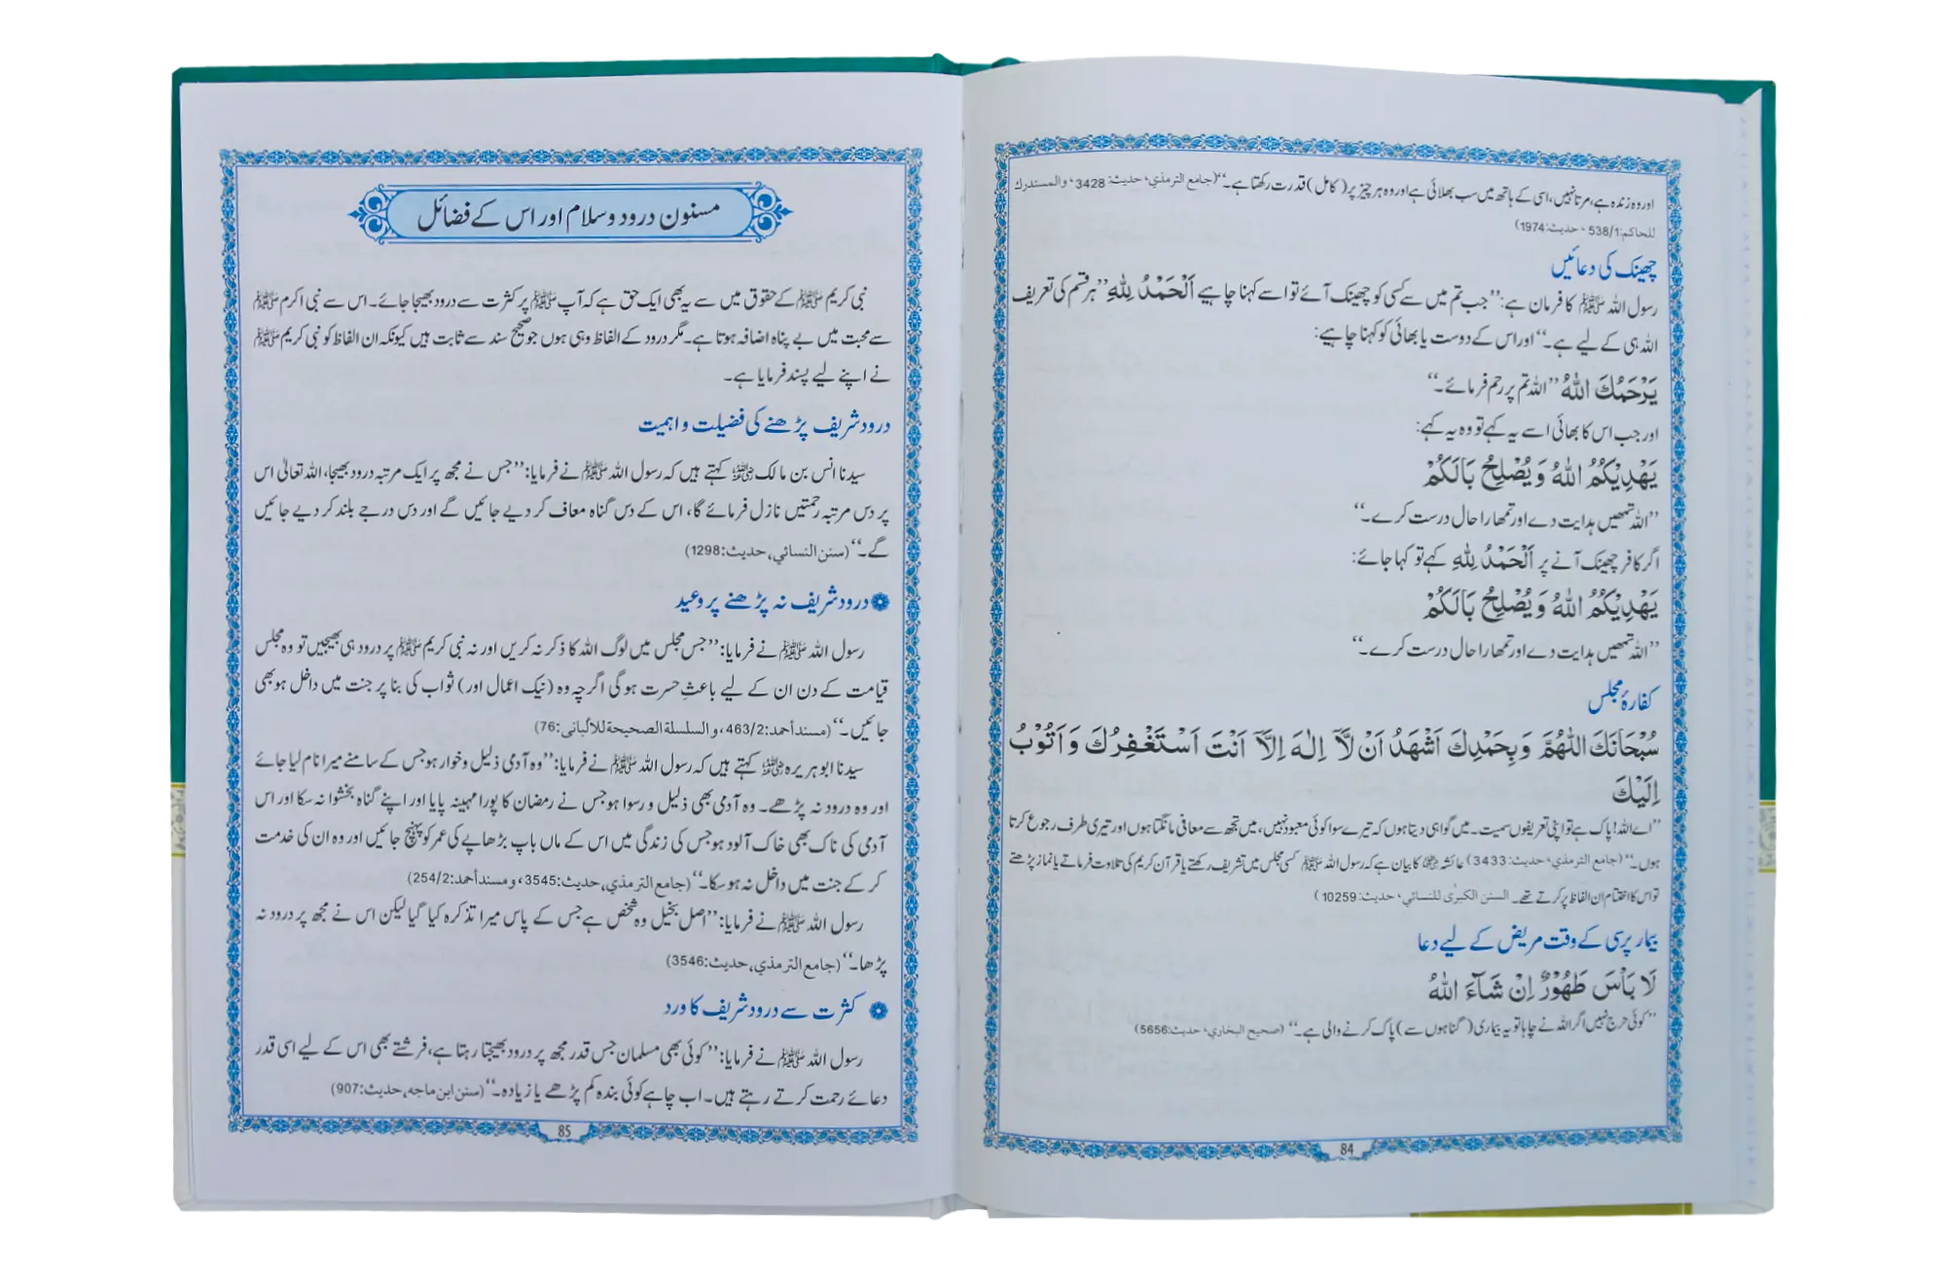 اور وہ زندہ ہے، مرتا نہیں، اسی کے ہاتھ میں سب بھلائی ہے اور وہ ہر چیز پر (کامل) قدرت رکھتا ہے۔‘‘ (جامع الترمذي، حديث: 3428، والمستدرك
للحاكم: 538/1، حديث: 1974)
چھینک کی دعائیں
رسول اللہ ﷺ کا فرمان ہے: ’’جب تم میں سے کسی کو چھینک آئے تو اسے کہنا چاہیے اَلْحَمْدُ لِلّٰهِ ’’ہر قسم کی تعریف
اللہ ہی کے لیے ہے۔‘‘ اور اس کے دوست یا بھائی کو کہنا چاہیے:
يَرْحَمُكَ اللّٰهُ ’’اللہ تم پر رحم فرمائے۔‘‘
اور جب اس کا بھائی اسے یہ کہے تو وہ یہ کہے:
يَهْدِيْكُمُ اللّٰهُ وَيُصْلِحُ بَالَكُمْ
’’اللہ تمھیں ہدایت دے اور تمھارا حال درست کرے۔‘‘
اگر کافر چھینک آنے پر اَلْحَمْدُ لِلّٰهِ کہے تو کہا جائے:
يَهْدِيْكُمُ اللّٰهُ وَيُصْلِحُ بَالَكُمْ
’’اللہ تمھیں ہدایت دے اور تمھارا حال درست کرے۔‘‘
کفارۂ مجلس
سُبْحَانَكَ اللّٰهُمَّ وَبِحَمْدِكَ اَشْهَدُ اَنْ لَّآ اِلٰهَ اِلَّآ اَنْتَ اَسْتَغْفِرُكَ وَاَتُوْبُ
اِلَيْكَ
’’اے اللہ! پاک ہے تو اپنی تعریفوں سمیت۔ میں گواہی دیتا ہوں کہ تیرے سوا کوئی معبود نہیں، میں تجھ سے معافی مانگتا ہوں اور تیری طرف رجوع کرتا
ہوں۔‘‘ (جامع الترمذي، حديث: 3433) عائشہ ؓ کا بیان ہے کہ رسول اللہ ﷺ کسی مجلس میں تشریف رکھتے یا قرآن کریم کی تلاوت فرماتے یا نماز پڑھتے
تو اس کا اختتام ان الفاظ پر کرتے تھے۔ السنن الكبرٰى للنسائي، حديث: 10259)
بیمار پرسی کے وقت مریض کے لیے دعا
لَا بَاْسَ طَهُوْرٌ اِنْ شَآءَ اللّٰهُ
’’کوئی حرج نہیں اگر اللہ نے چاہا تو یہ بیماری (گناہوں سے) پاک کرنے والی ہے۔‘‘ (صحيح البخاري، حديث: 5656)
84
مسنون درود و سلام اور اس کے فضائل
نبی کریم ﷺ کے حقوق میں سے یہ بھی ایک حق ہے کہ آپ ﷺ پر کثرت سے درود بھیجا جائے۔ اس سے نبی اکرم ﷺ
سے محبت میں بے پناہ اضافہ ہوتا ہے۔ مگر درود کے الفاظ وہی ہوں جو صحیح سند سے ثابت ہیں کیونکہ ان الفاظ کو نبی کریم ﷺ
نے اپنے لیے پسند فرمایا ہے۔
درود شریف پڑھنے کی فضیلت و اہمیت
سیدنا انس بن مالک ؓ کہتے ہیں کہ رسول اللہ ﷺ نے فرمایا: ’’جس نے مجھ پر ایک مرتبہ درود بھیجا، اللہ تعالیٰ اس
پر دس مرتبہ رحمتیں نازل فرمائے گا، اس کے دس گناہ معاف کر دیے جائیں گے اور دس درجے بلند کر دیے جائیں
گے۔‘‘ (سنن النسائي، حديث: 1298)
درود شریف نہ پڑھنے پر وعید
رسول اللہ ﷺ نے فرمایا: ’’جس مجلس میں لوگ اللہ کا ذکر نہ کریں اور نہ نبی کریم ﷺ پر درود ہی بھیجیں تو وہ مجلس
قیامت کے دن ان کے لیے باعثِ حسرت ہوگی اگرچہ وہ (نیک اعمال اور) ثواب کی بنا پر جنت میں داخل ہو بھی
جائیں۔‘‘ (مسند أحمد: 463/2، والسلسلة الصحيحة للألباني: 76)
سیدنا ابوہریرہ ؓ کہتے ہیں کہ رسول اللہ ﷺ نے فرمایا: ’’وہ آدمی ذلیل و خوار ہو جس کے سامنے میرا نام لیا جائے
اور وہ درود نہ پڑھے۔ وہ آدمی بھی ذلیل و رسوا ہو جس نے رمضان کا پورا مہینہ پایا اور اپنے گناہ بخشوا نہ سکا اور اس
آدمی کی ناک بھی خاک آلود ہو جس کی زندگی میں اس کے ماں باپ بڑھاپے کی عمر کو پہنچ جائیں اور وہ ان کی خدمت
کر کے جنت میں داخل نہ ہو سکا۔‘‘ (جامع الترمذي، حديث: 3545، ومسند أحمد: 254/2)
رسول اللہ ﷺ نے فرمایا: ’’اصل بخیل وہ شخص ہے جس کے پاس میرا تذکرہ کیا گیا لیکن اس نے مجھ پر درود نہ
پڑھا۔‘‘ (جامع الترمذي، حديث: 3546)
کثرت سے درود شریف کا ورد
رسول اللہ ﷺ نے فرمایا: ’’کوئی بھی مسلمان جس قدر مجھ پر درود بھیجتا رہتا ہے، فرشتے بھی اس کے لیے اسی قدر
دعائے رحمت کرتے رہتے ہیں۔ اب چاہے کوئی بندہ کم پڑھے یا زیادہ۔‘‘ (سنن ابن ماجه، حديث: 907)
85